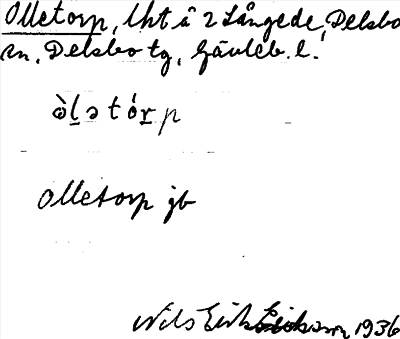 Olletorp, lht å 2 Långede, Delsbo
sn, Delsbo tg, Gävleb. l.
ò̀l̠ətórp
Olletorp jb
Nils Erik Eriksson 1936